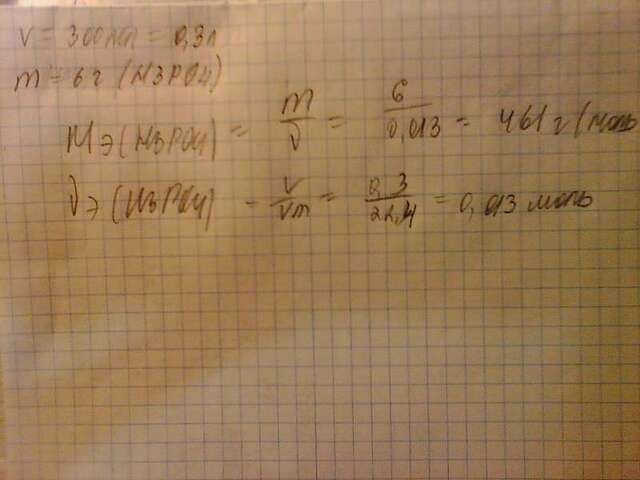 V = 300мл = 0,3л
m = 6г (H3PO4)
Mэ(H3PO4) = m/ν = 6/0,013 = 461г/моль
νэ(H3PO4) = V/Vm = 0,3/22,4 = 0,013 моль